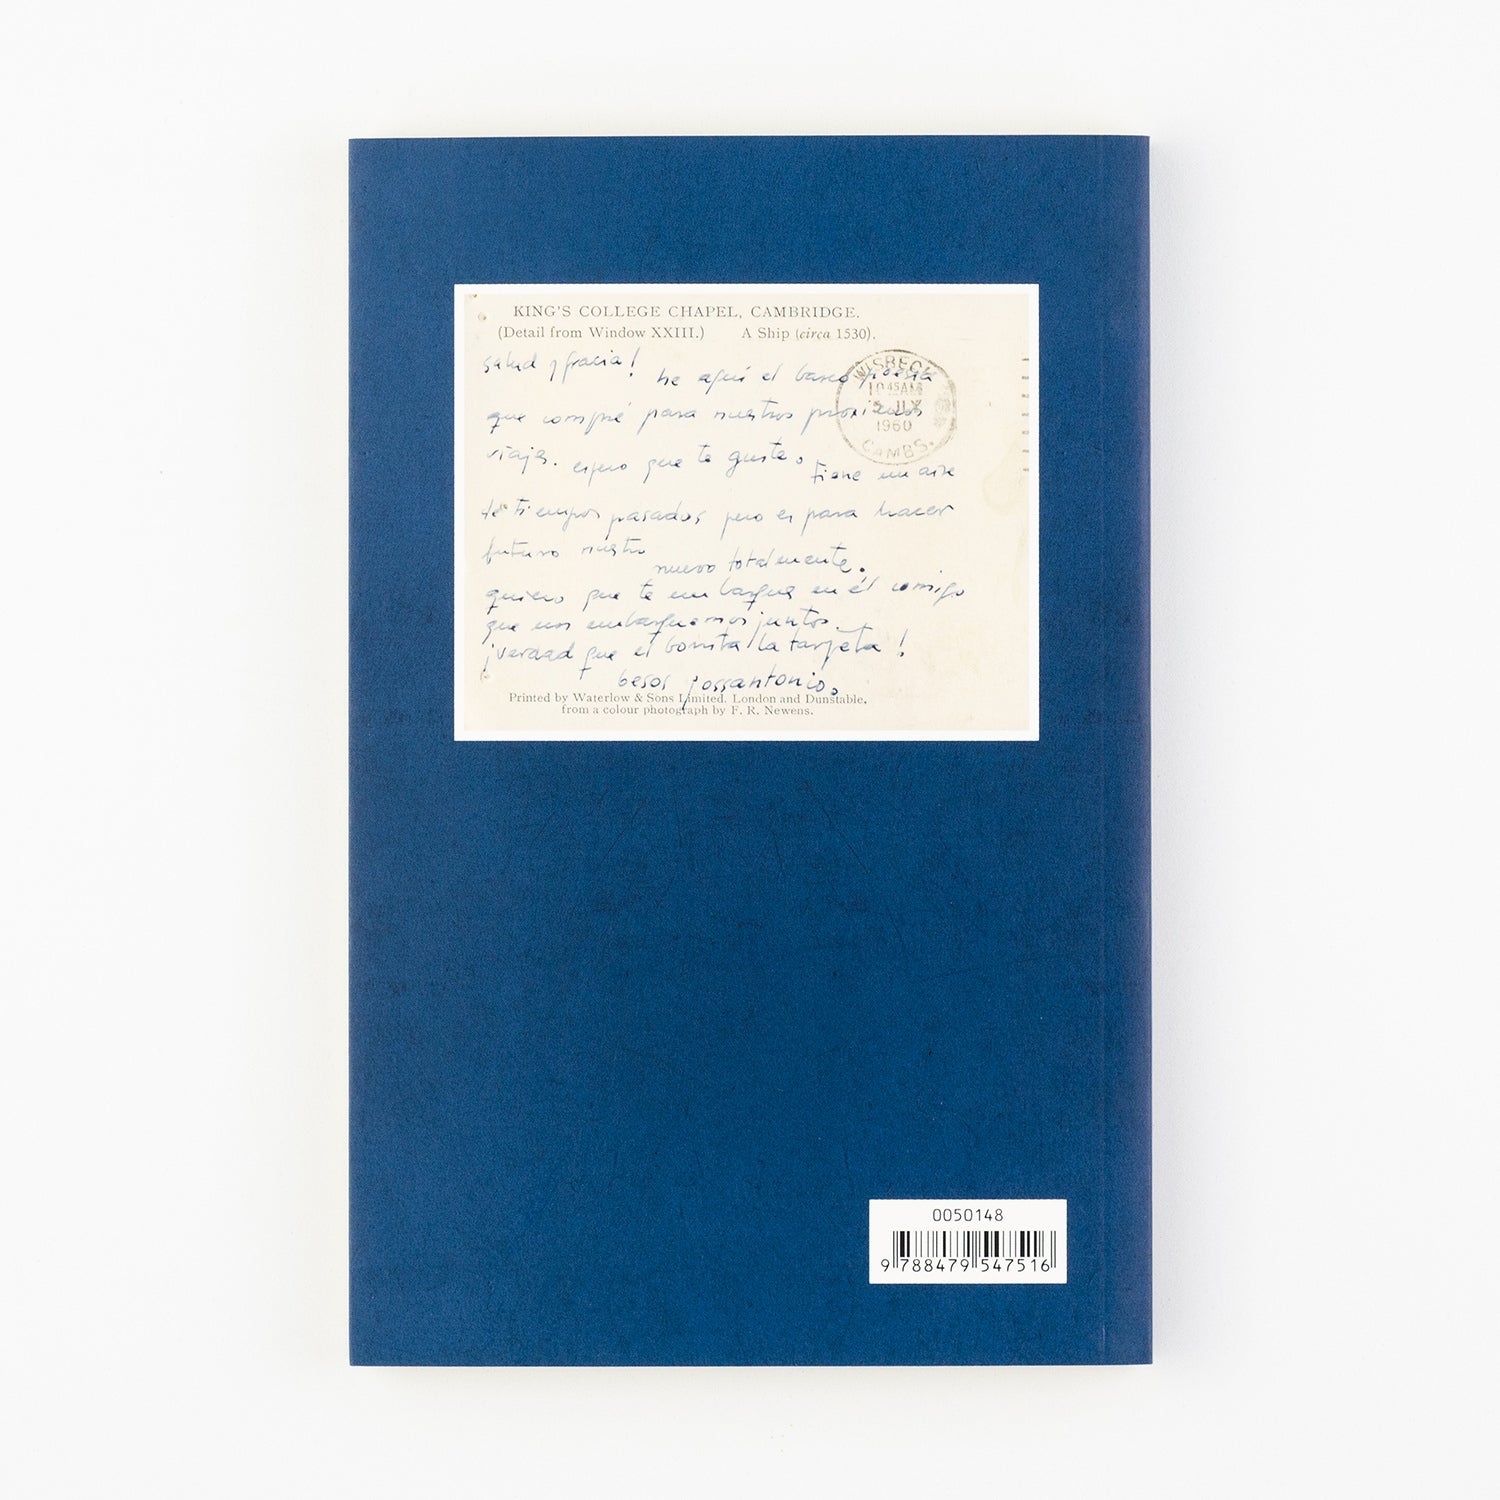 KING'S COLLEGE CHAPEL, CAMBRIDGE.
(Detail from Window XXIII.) A Ship (circa 1530).
salud y gracia! he aquí el barco poesía
que compré para nuestros proximos
viajes. espero que te guste. tiene un aire
de tiempos pasados pero es para hacer
futuro nuestro
nuevo totalmente.
quiero que te embarque en él comigo
que nos embarquemos juntos.
¡verdad que es bonita la tarjeta!
besos josantonio.
Printed by Waterlow & Sons Limited, London and Dunstable,
from a colour photograph by F. R. Newens.
WISBECH
10 45 AM
1960
CAMBS.
0050148
9 788479 547516